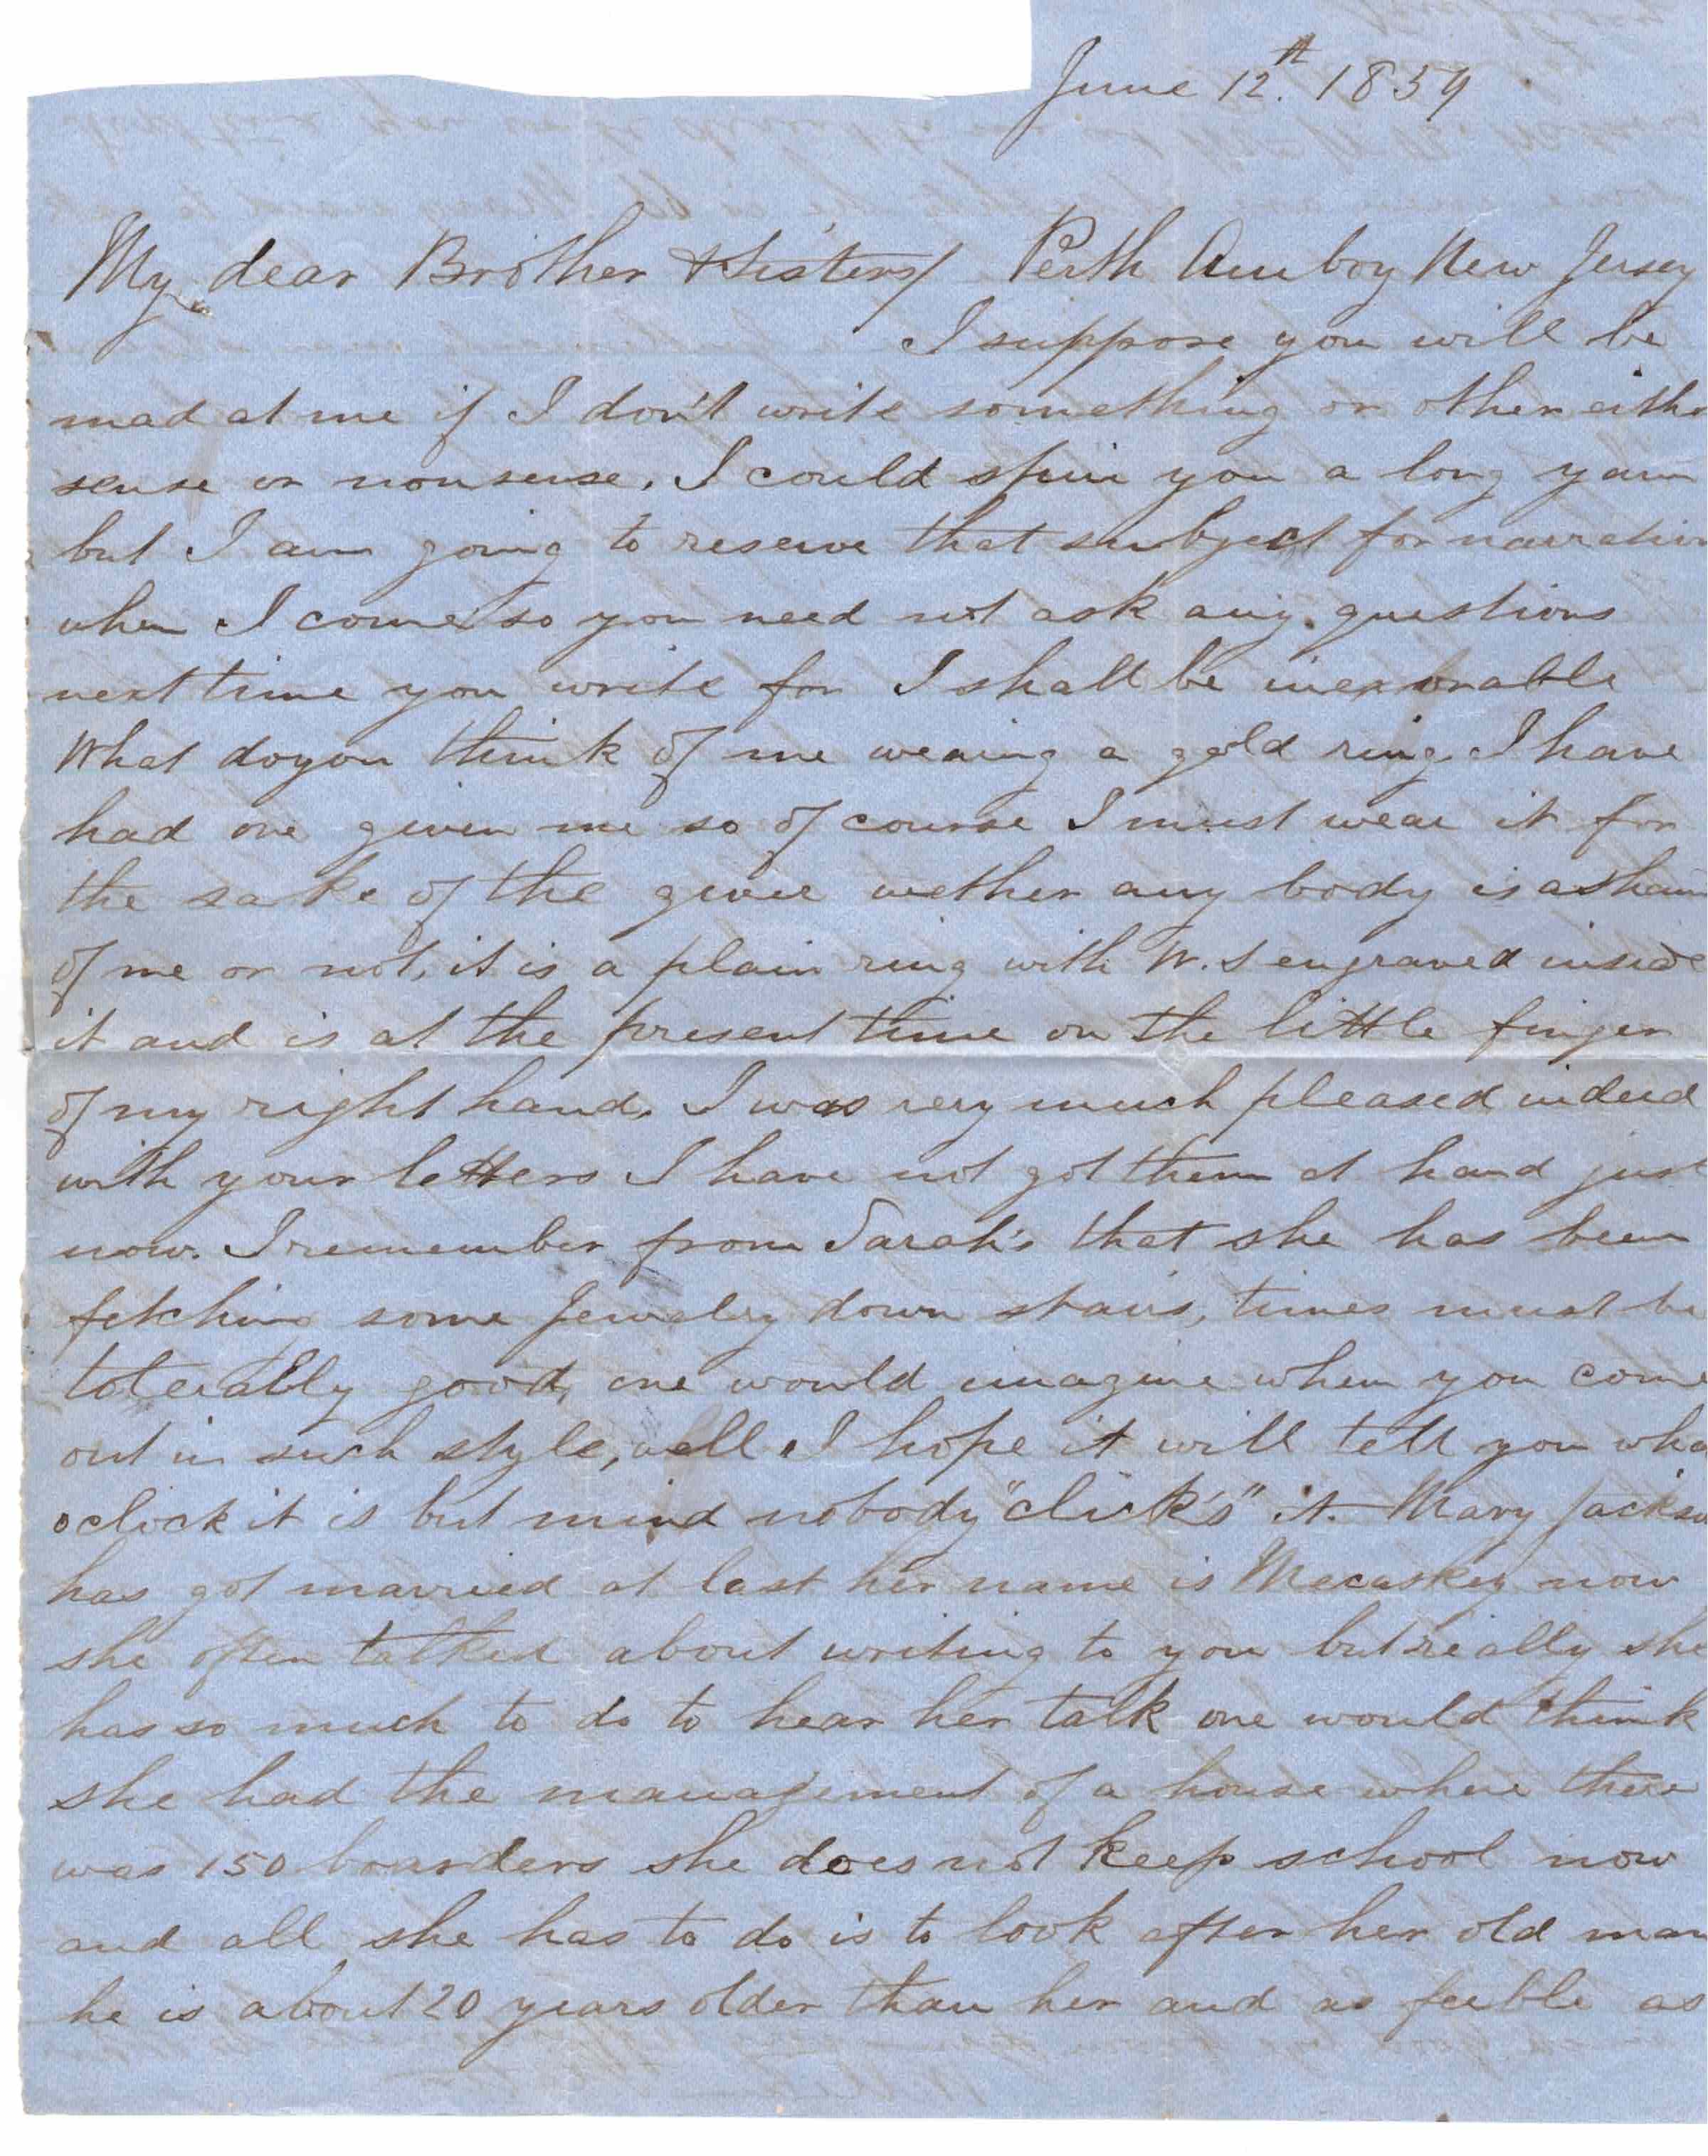 June 12th. 1859
My dear Brother & Sisters/ Perth Amboy New Jersey
I suppose you will be
mad at me if I don't write something or other eithe
sense or nonsense. I could spin you a long yarn
but I am going to reserve that subject for narration
when I come so you need not ask any questions
next time you write for I shall be inexorable
What do you think of me wearing a gold ring. I have
had one given me so of course I must wear it for
the sake of the giver wether any body is asham
of me or not, it is a plain ring with W. S engraved inside
it and is at the present time on the little finger
of my right hand. I was very much pleased indeed
with your letters I have not got them at hand just
now. I remember from Sarah's that she has been
fetching some Jewelry down stairs, times must be
tolerably good, one would imagine when you come
out in such style, well I hope it will tell you wha
oclock it is but mind nobody "click's" it. Mary Jackso
has got married at last her name is Mecaskey now
she often talked about writing to you but really she
has so much to do to hear her talk one would think
she had the management of a house where there
was 150 boarders she does not keep school now
and all she has to do is to look after her old man
he is about 20 years older than her and as feeble as